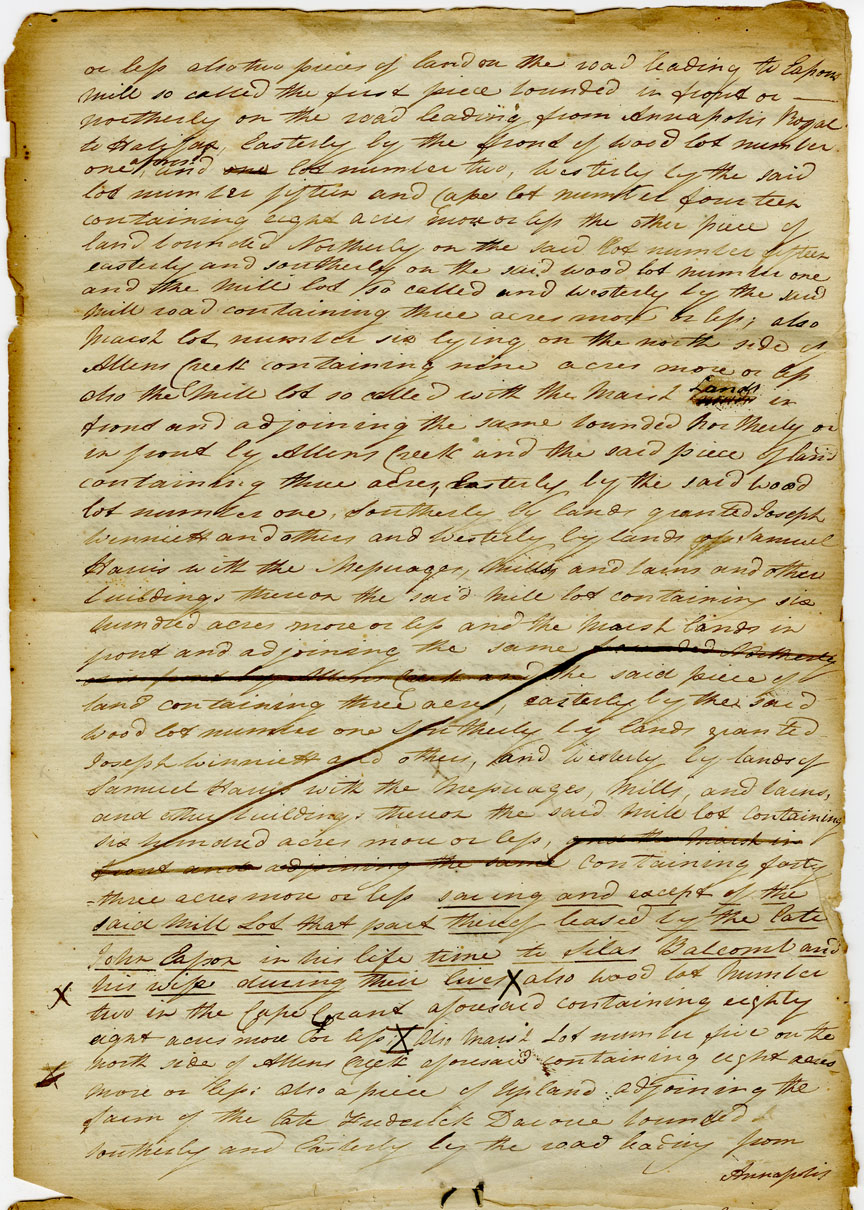 or less also two pieces of land on the road leading to Easons
mill so called the first piece bounded in front or
northerly on the road leading from Annapolis Royal
to Halifax, Easterly by the front of wood lot number
one aforesd. and one lot number two, Westerly by the said
lot number fifteen and Cape lot number fourteen
containing eight acres more or less the other piece of
land bounded Northerly on the said lot number fifteen
easterly and southerly on the said wood lot number one
and the mill lot so called and westerly by the said
mill road containing three acres more or less; also
Marsh lot number six lying on the north side of
Allens Creek containing nine acres more or less
also the Mill lot so called with the Marsh Lands in
front and adjoining the same bounded Northerly or
in front by Allens Creek and the said piece of land
containing three acres, Easterly by the said wood
lot number one, Southerly by lands granted Joseph
Winniett and others and Westerly by lands of Samuel
Harris with the Messuages, Mills and barns and other
buildings thereon the said mill lot containing six
hundred acres more or less and the Marsh lands in
front and adjoining the same bounded Northerly
or in front by Allens Creek and the said piece of
land containing three acres, easterly by the said
wood lot number one Southerly by lands granted
Joseph Winniett and others, and Westerly by lands of
Samuel Harris with the Messuages, Mills, and barns,
and other buildings thereon the said Mill lot containing
six hundred acres more or less, and the Marsh in
front and adjoining the same containing forty
=three acres more or less saving and except of the
said Mill Lot that part thereof leased by the late
John Eason in his life time to Silas Balcomb and
X his wife during their lives X also wood lot Number
two in the Cape Grant aforesaid containing eighty
eight acres more or less X Also Marsh Lot number five on the
X north side of Allens Creek aforesaid containing eight acres
more or less; also a piece of Upland adjoining the
farm of the late Frederick Davoue bounded
southerly and Easterly by the road leading from
Annapolis